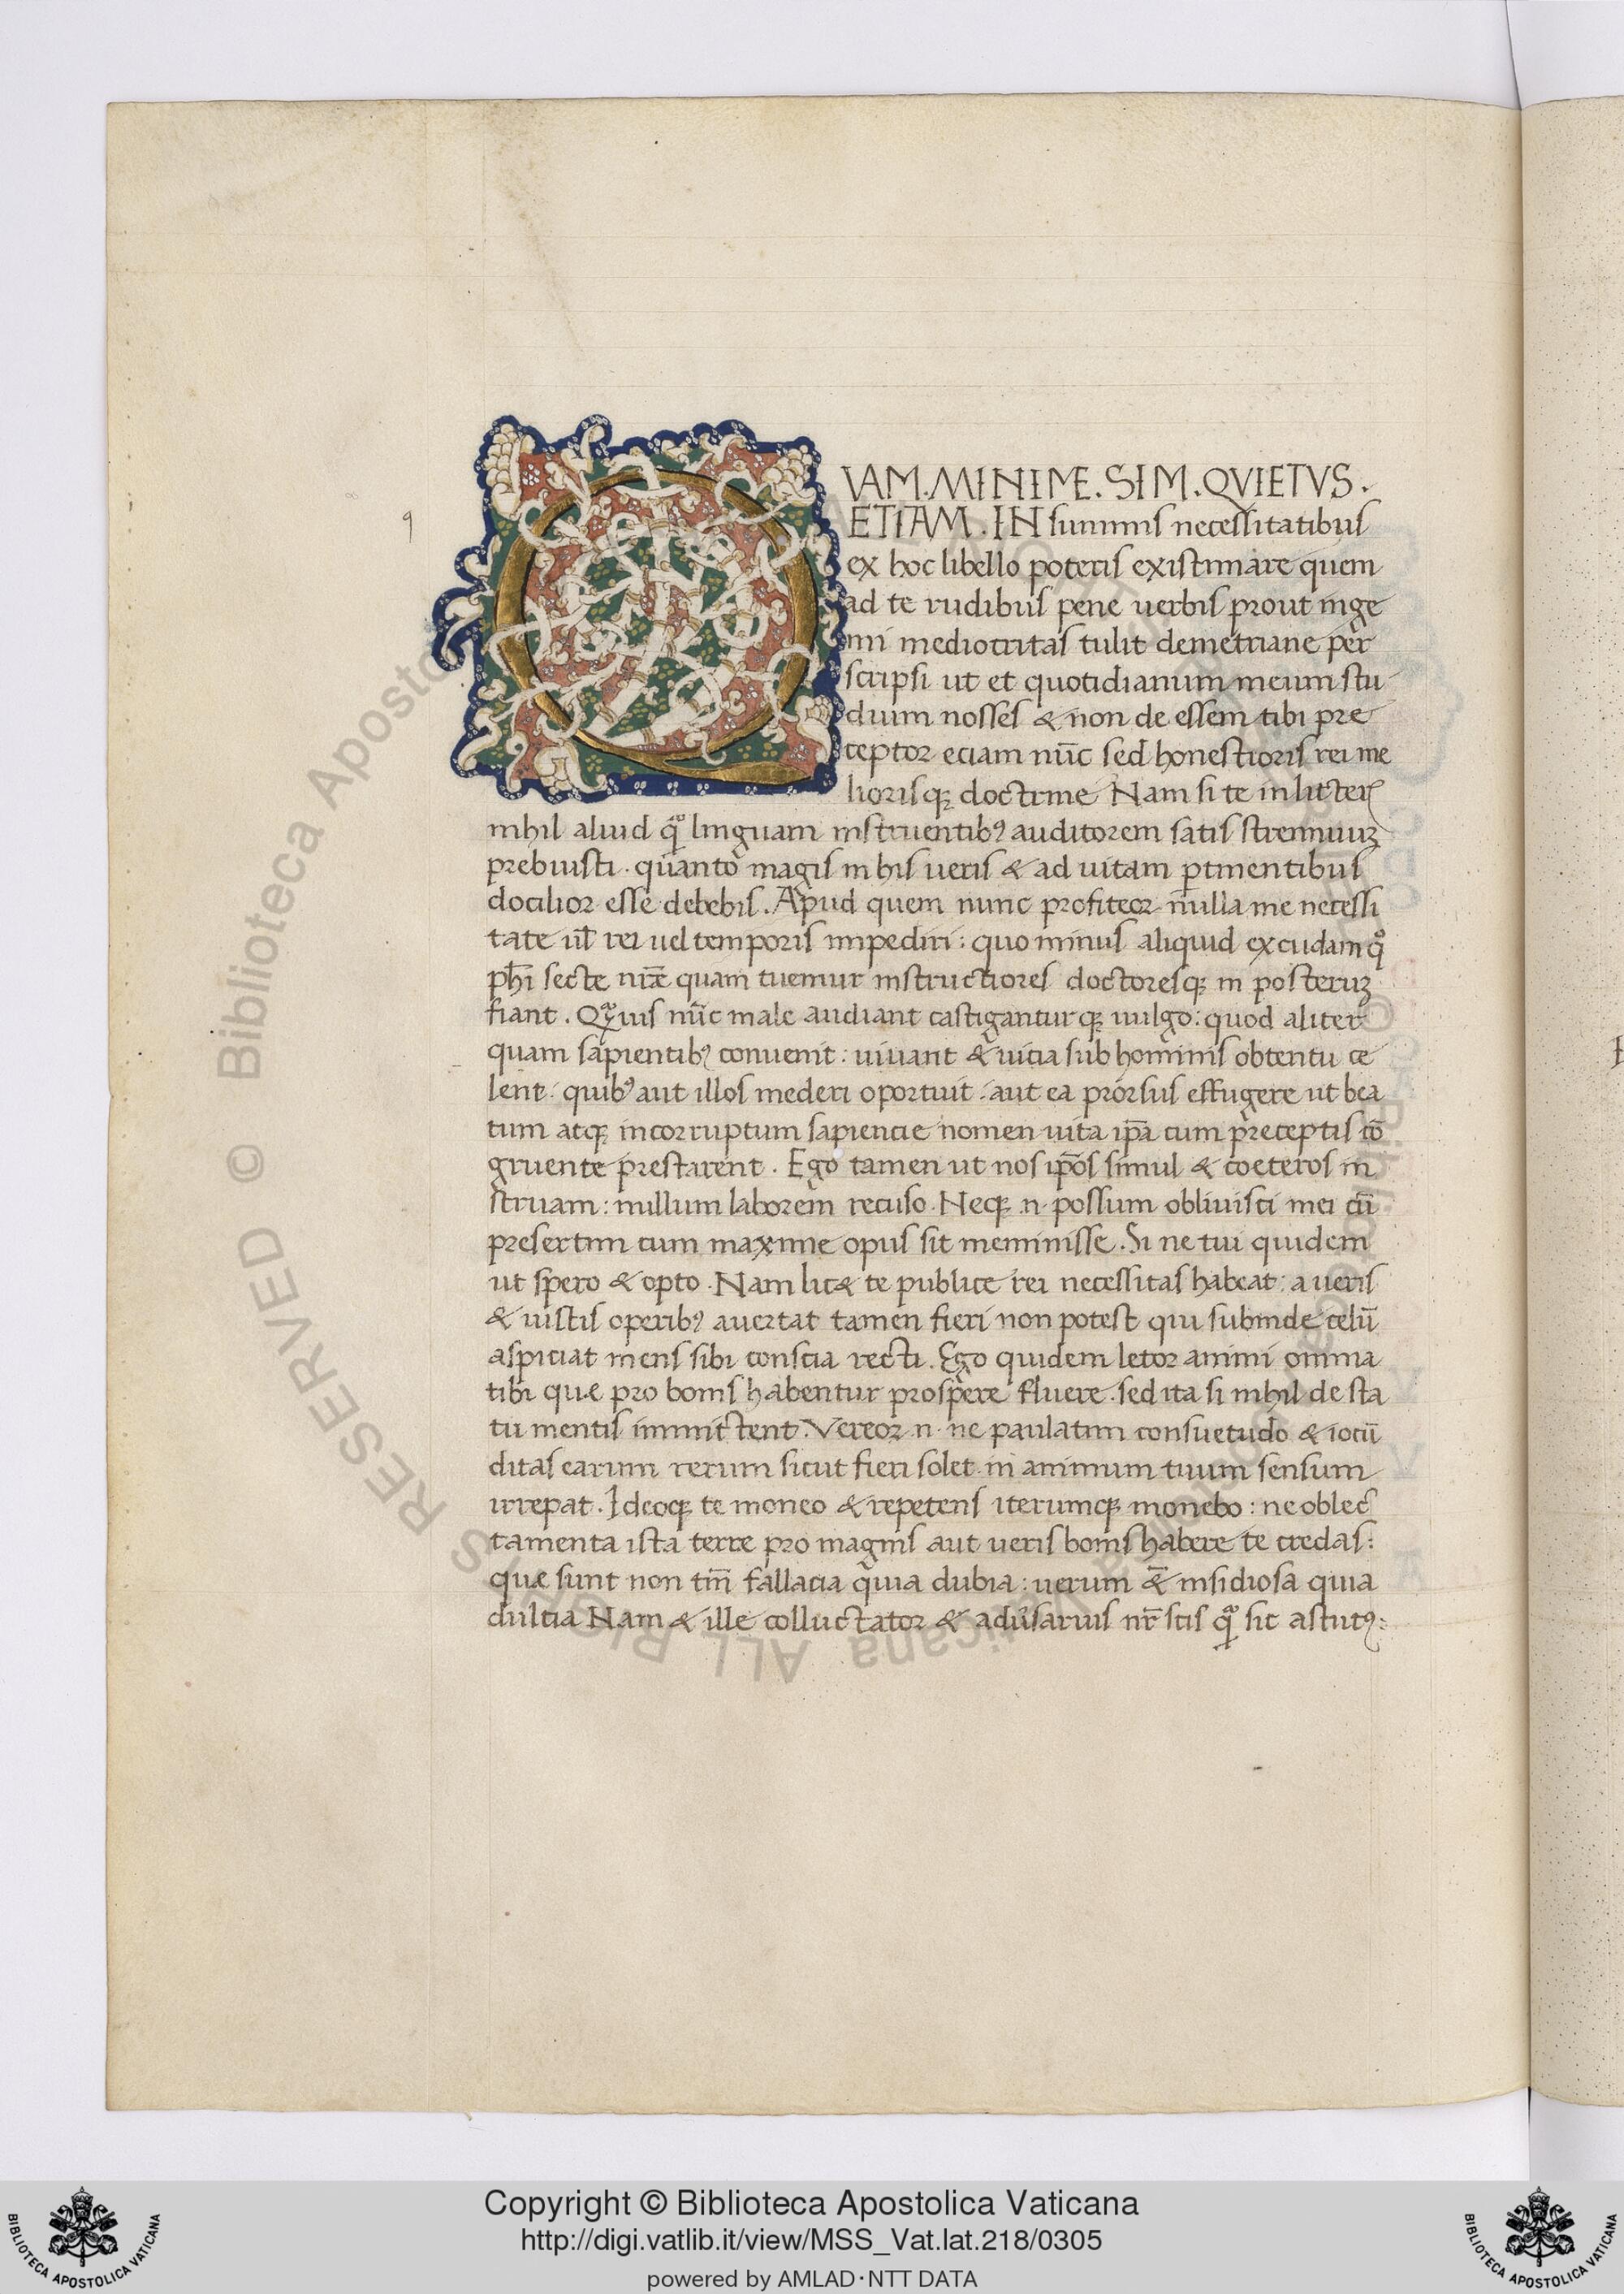 q
QVAM.MINIME.SIM.QVIETVS.
ETIAM.IN summis necessitatibus
ex hoc libello poteris existimare quem
ad te rudibus pene uerbis prout inge
nii mediocritas tulit demetriane per
scripsi ut et quotidianum meum stu
dium nosses & non de essem tibi pre
ceptor eciam nūc sed honestioris rei me
liorisqꝫ doctrine Nam si te in litteris
nihil aliud qͦ linguam instruentibꝰ auditorem satis strennuuꝫ
prebuisti. quanto magis in his ueris & ad uitam ꝑtinentibus
docilior esse debebis. Apud quem nunc profiteor nulla me necessi
tate ul̄ rei uel temporis impediri: quo minus aliquid excudam qͦ
phī secte nr̄æ quam tuemur instructiores doctoresqꝫ in posteruꝫ
fiant. Qͣuis nūc male audiant castiganturqꝫ uulgo: quod aliter
quam sapientibꝰ conuenit: uiuant & uicia sub hominis obtentu ce
lent: quibꝰ aut illos mederi oportuit: aut ea prorsus effugere ut bea
tum atqꝫ incorruptum sapiencie nomen uita ip̄a cum preceptis cō
gruente prestarent. Ego tamen ut nos ip̄os simul & coeteros in
struam: nullum laborem recuso. Neqꝫ .n. possum obliuisci mei cū
presertim cum maxime opus sit meminisse. Si ne tui quidem
ut spero & opto. Nam lic& te publice rei necessitas habeat: a ueris
& iustis operibꝰ auertat tamen fieri non potest qui subinde celū
aspiciat mens sibi conscia recti. Ego quidem letor animi omnia
tibi quæ pro bonis habentur prospere fluere. sed ita si nihil de sta
tu mentis immittent. Vereor .n. ne paulatim consuetudo & iocū
ditas earum rerum sicut fieri solet in animum tuum sensum
irrepat. Ideoqꝫ te moneo & repetens iterumqꝫ monebo: ne oblec
tamenta ista terre pro magnis aut ueris bonis habere te credas:
quæ sunt non tm̄ fallacia quia dubia: uerum &̄ insidiosa quia
dulcia Nam & ille colluctator & adūsarius nr̄ scis qͦ sit astutꝰ:
Copyright © Biblioteca Apostolica Vaticana
http://digi.vatlib.it/view/MSS_Vat.lat.218/0305
powered by AMLAD·NTT DATA
BIBLIOTECA APOSTOLICA VATICANA
BIBLIOTECA APOSTOLICA VATICANA